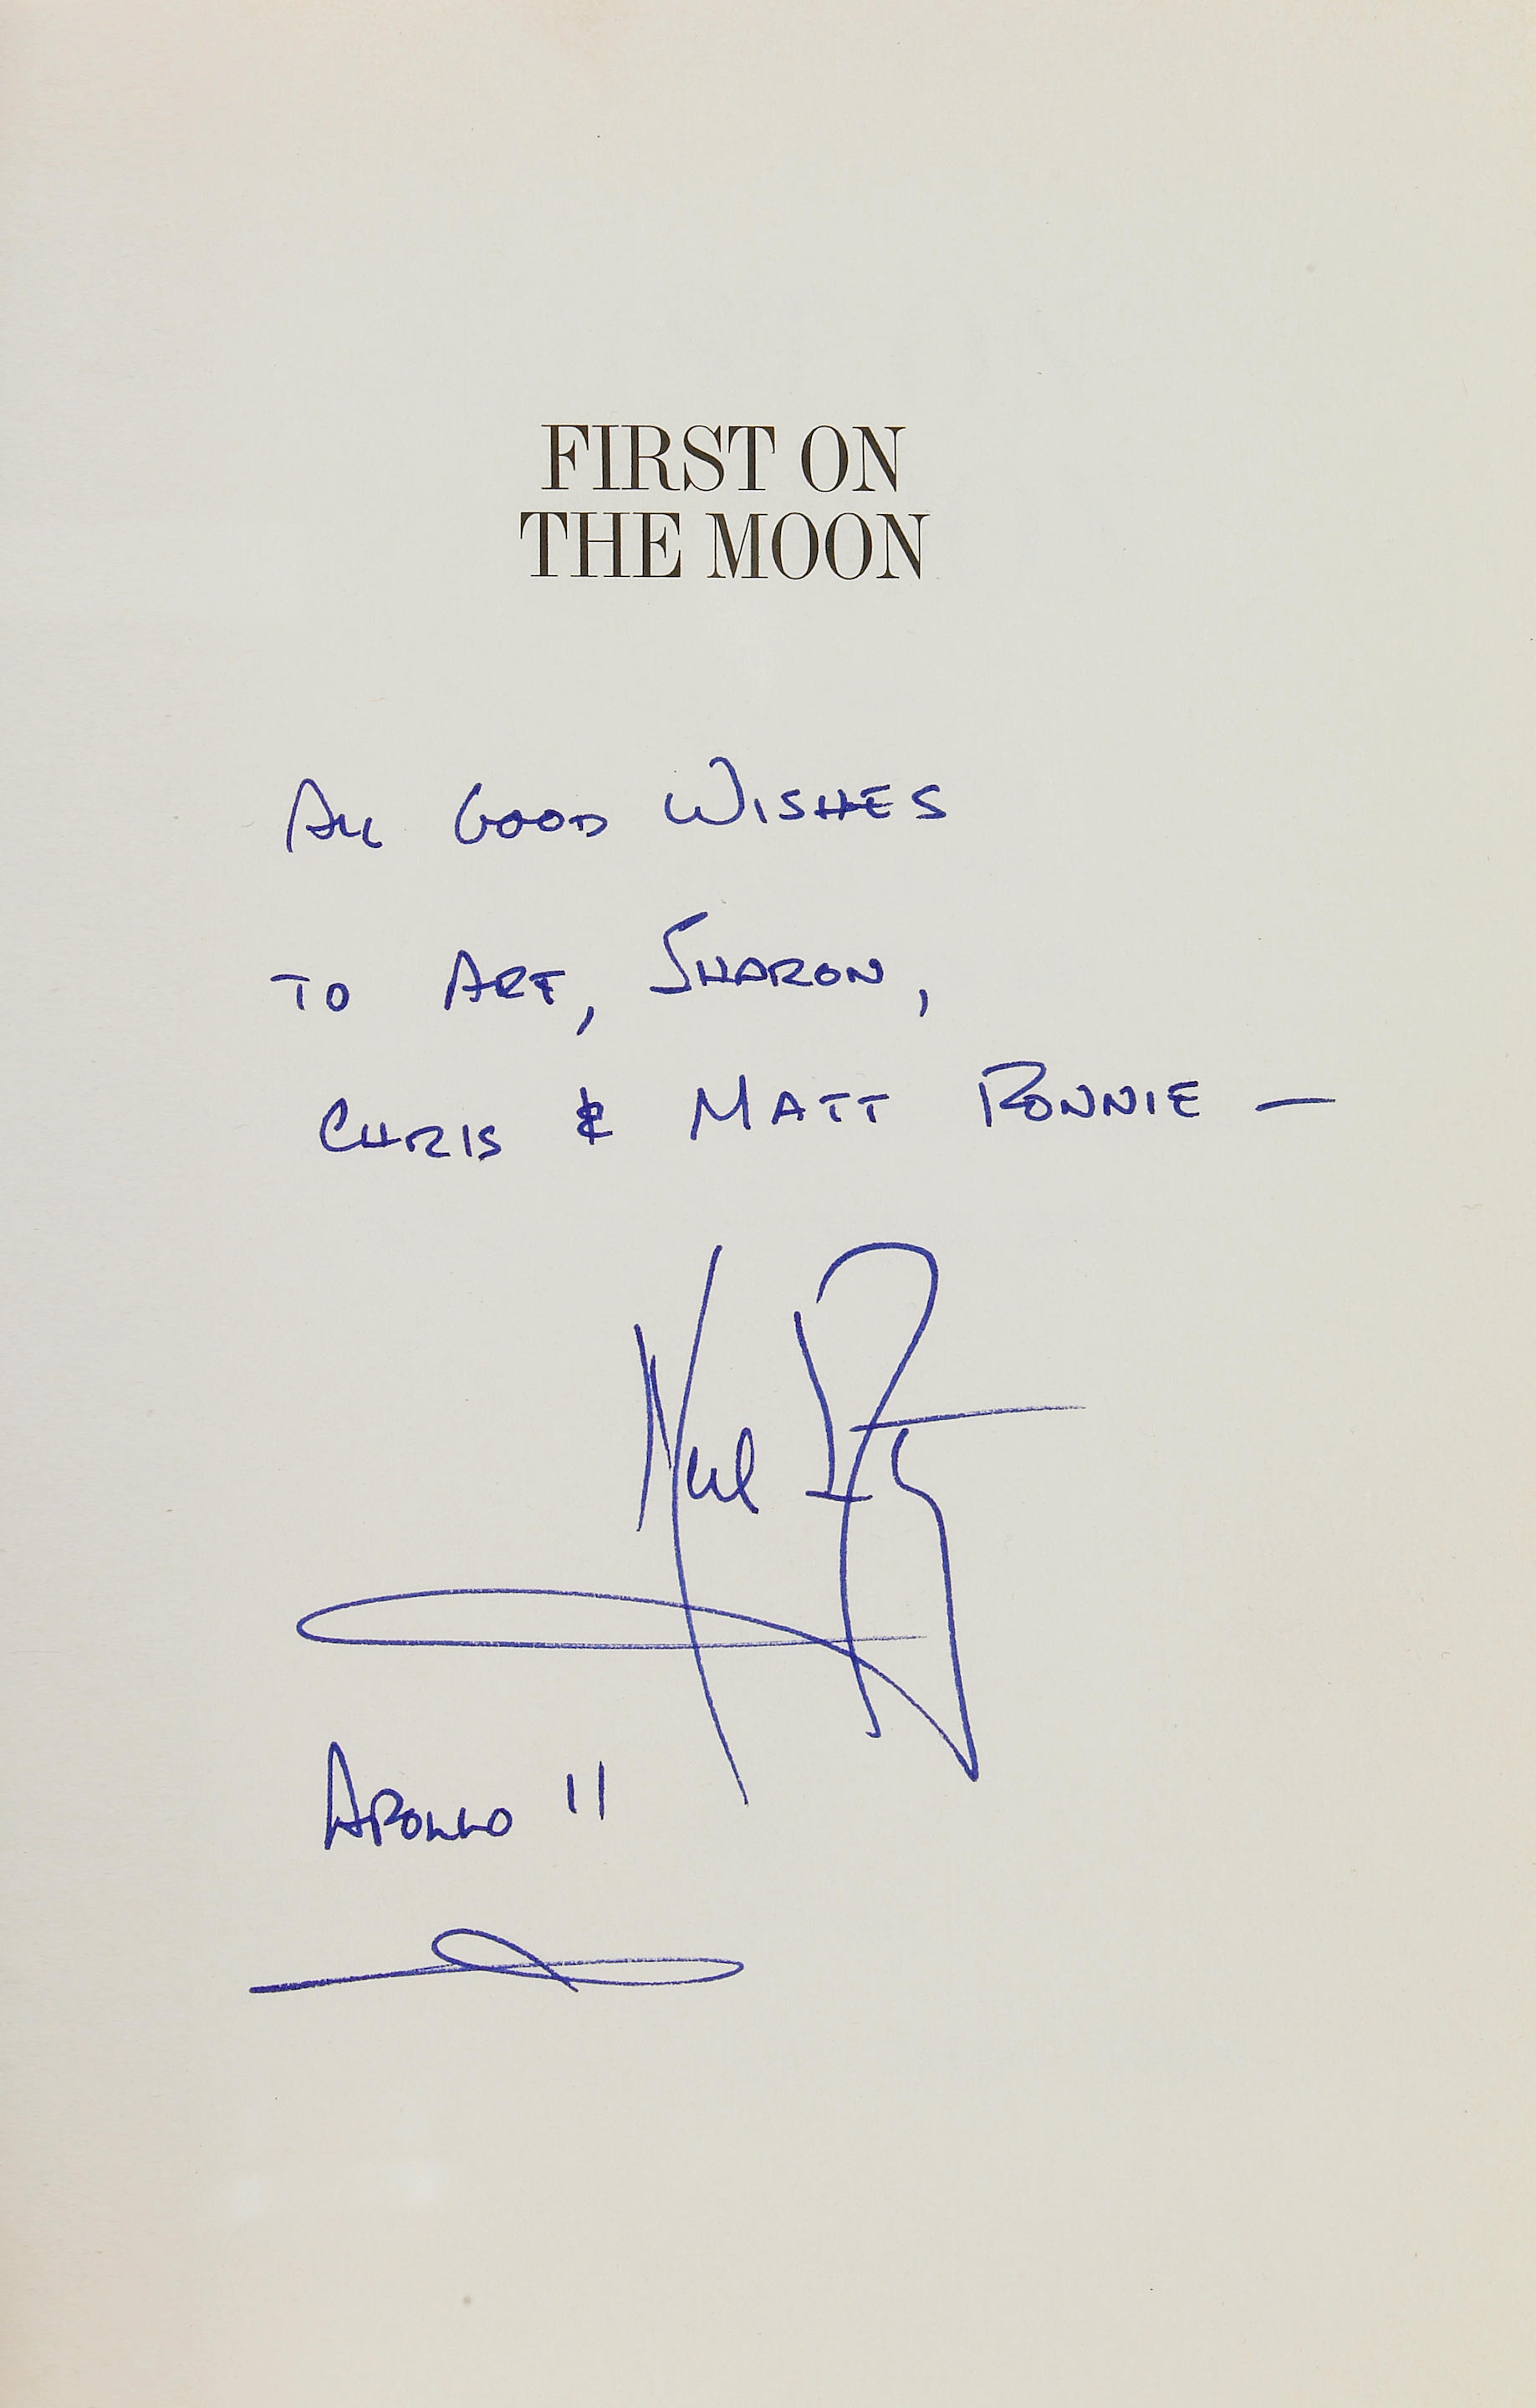 FIRST ON
THE MOON
ALL GOOD WISHES
TO ART, SHARON,
CHRIS & MATT RONNIE —
Neil
APOLLO 11